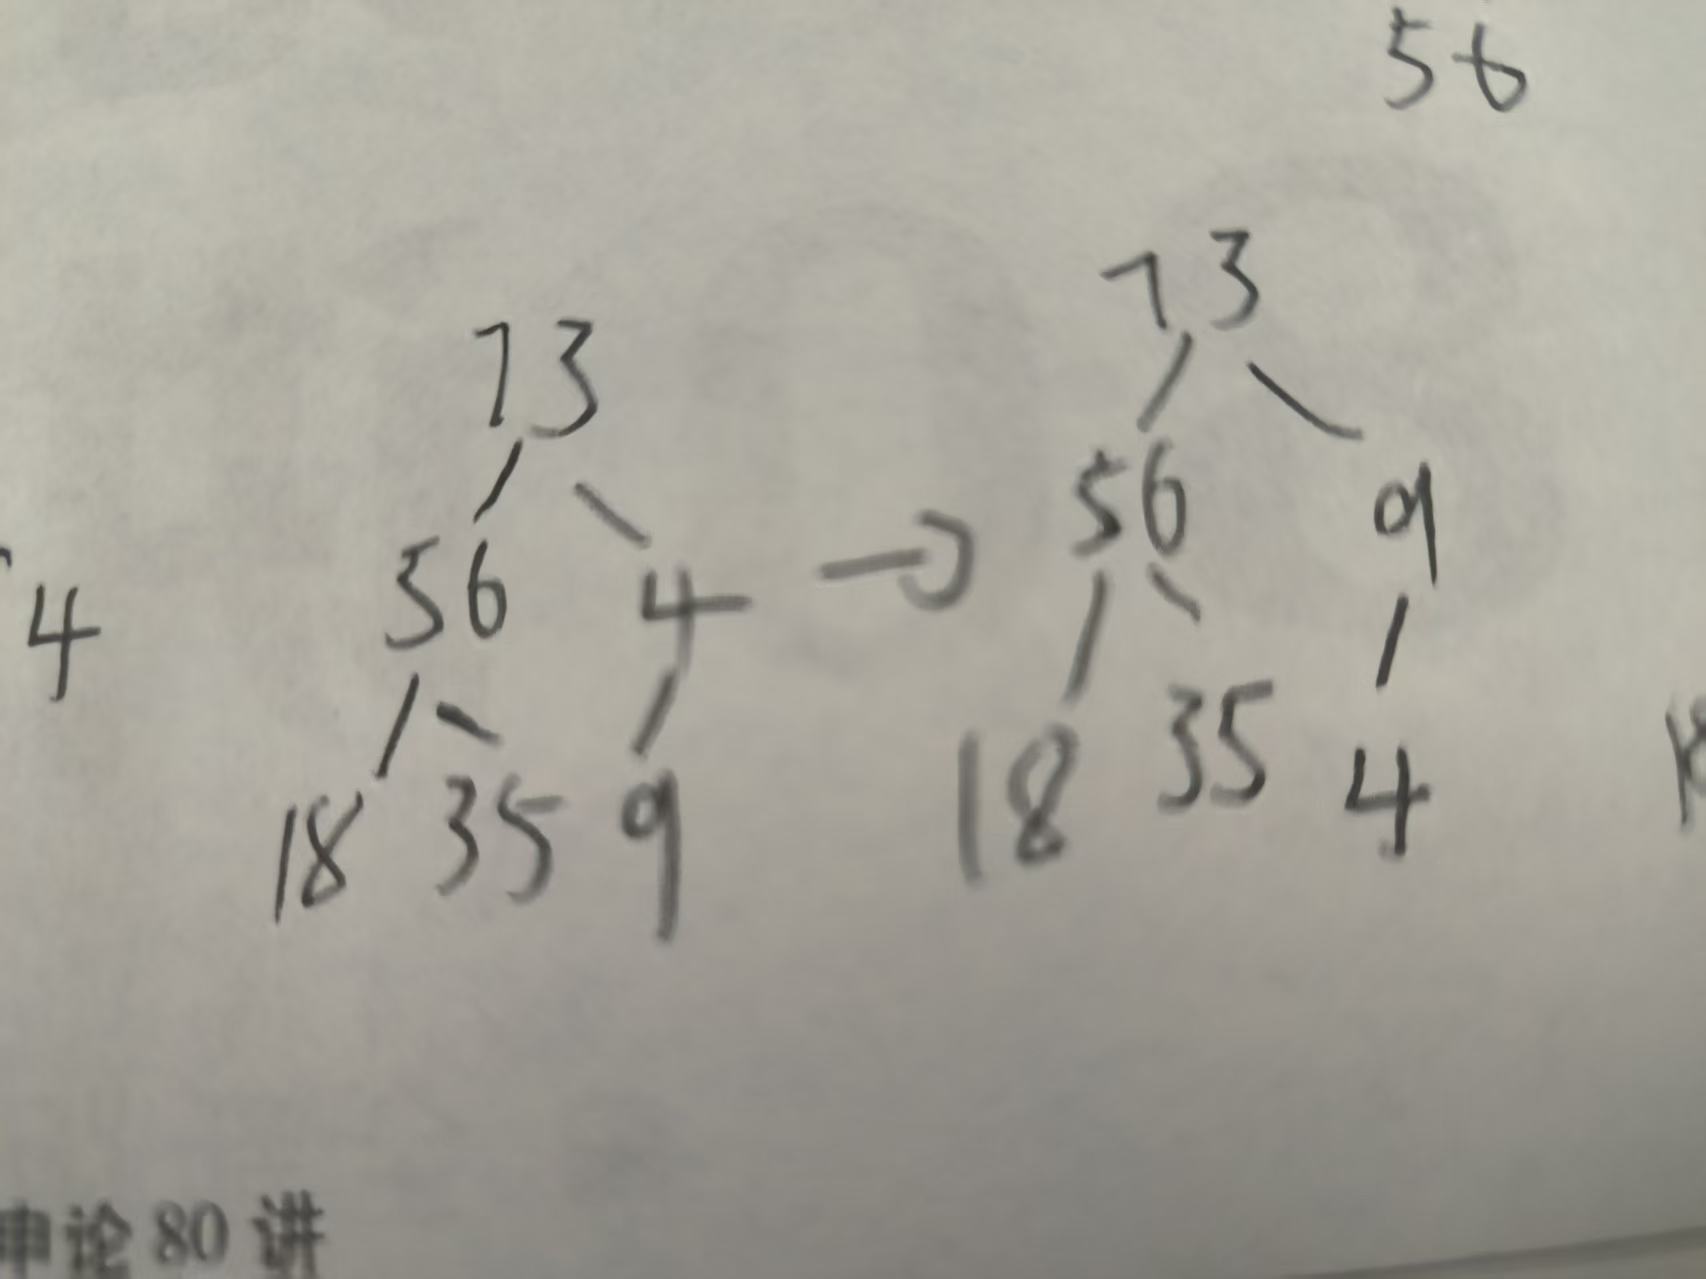 56
73
73
56 9
56 4
4
18 35 4
18 35 9
申论80讲